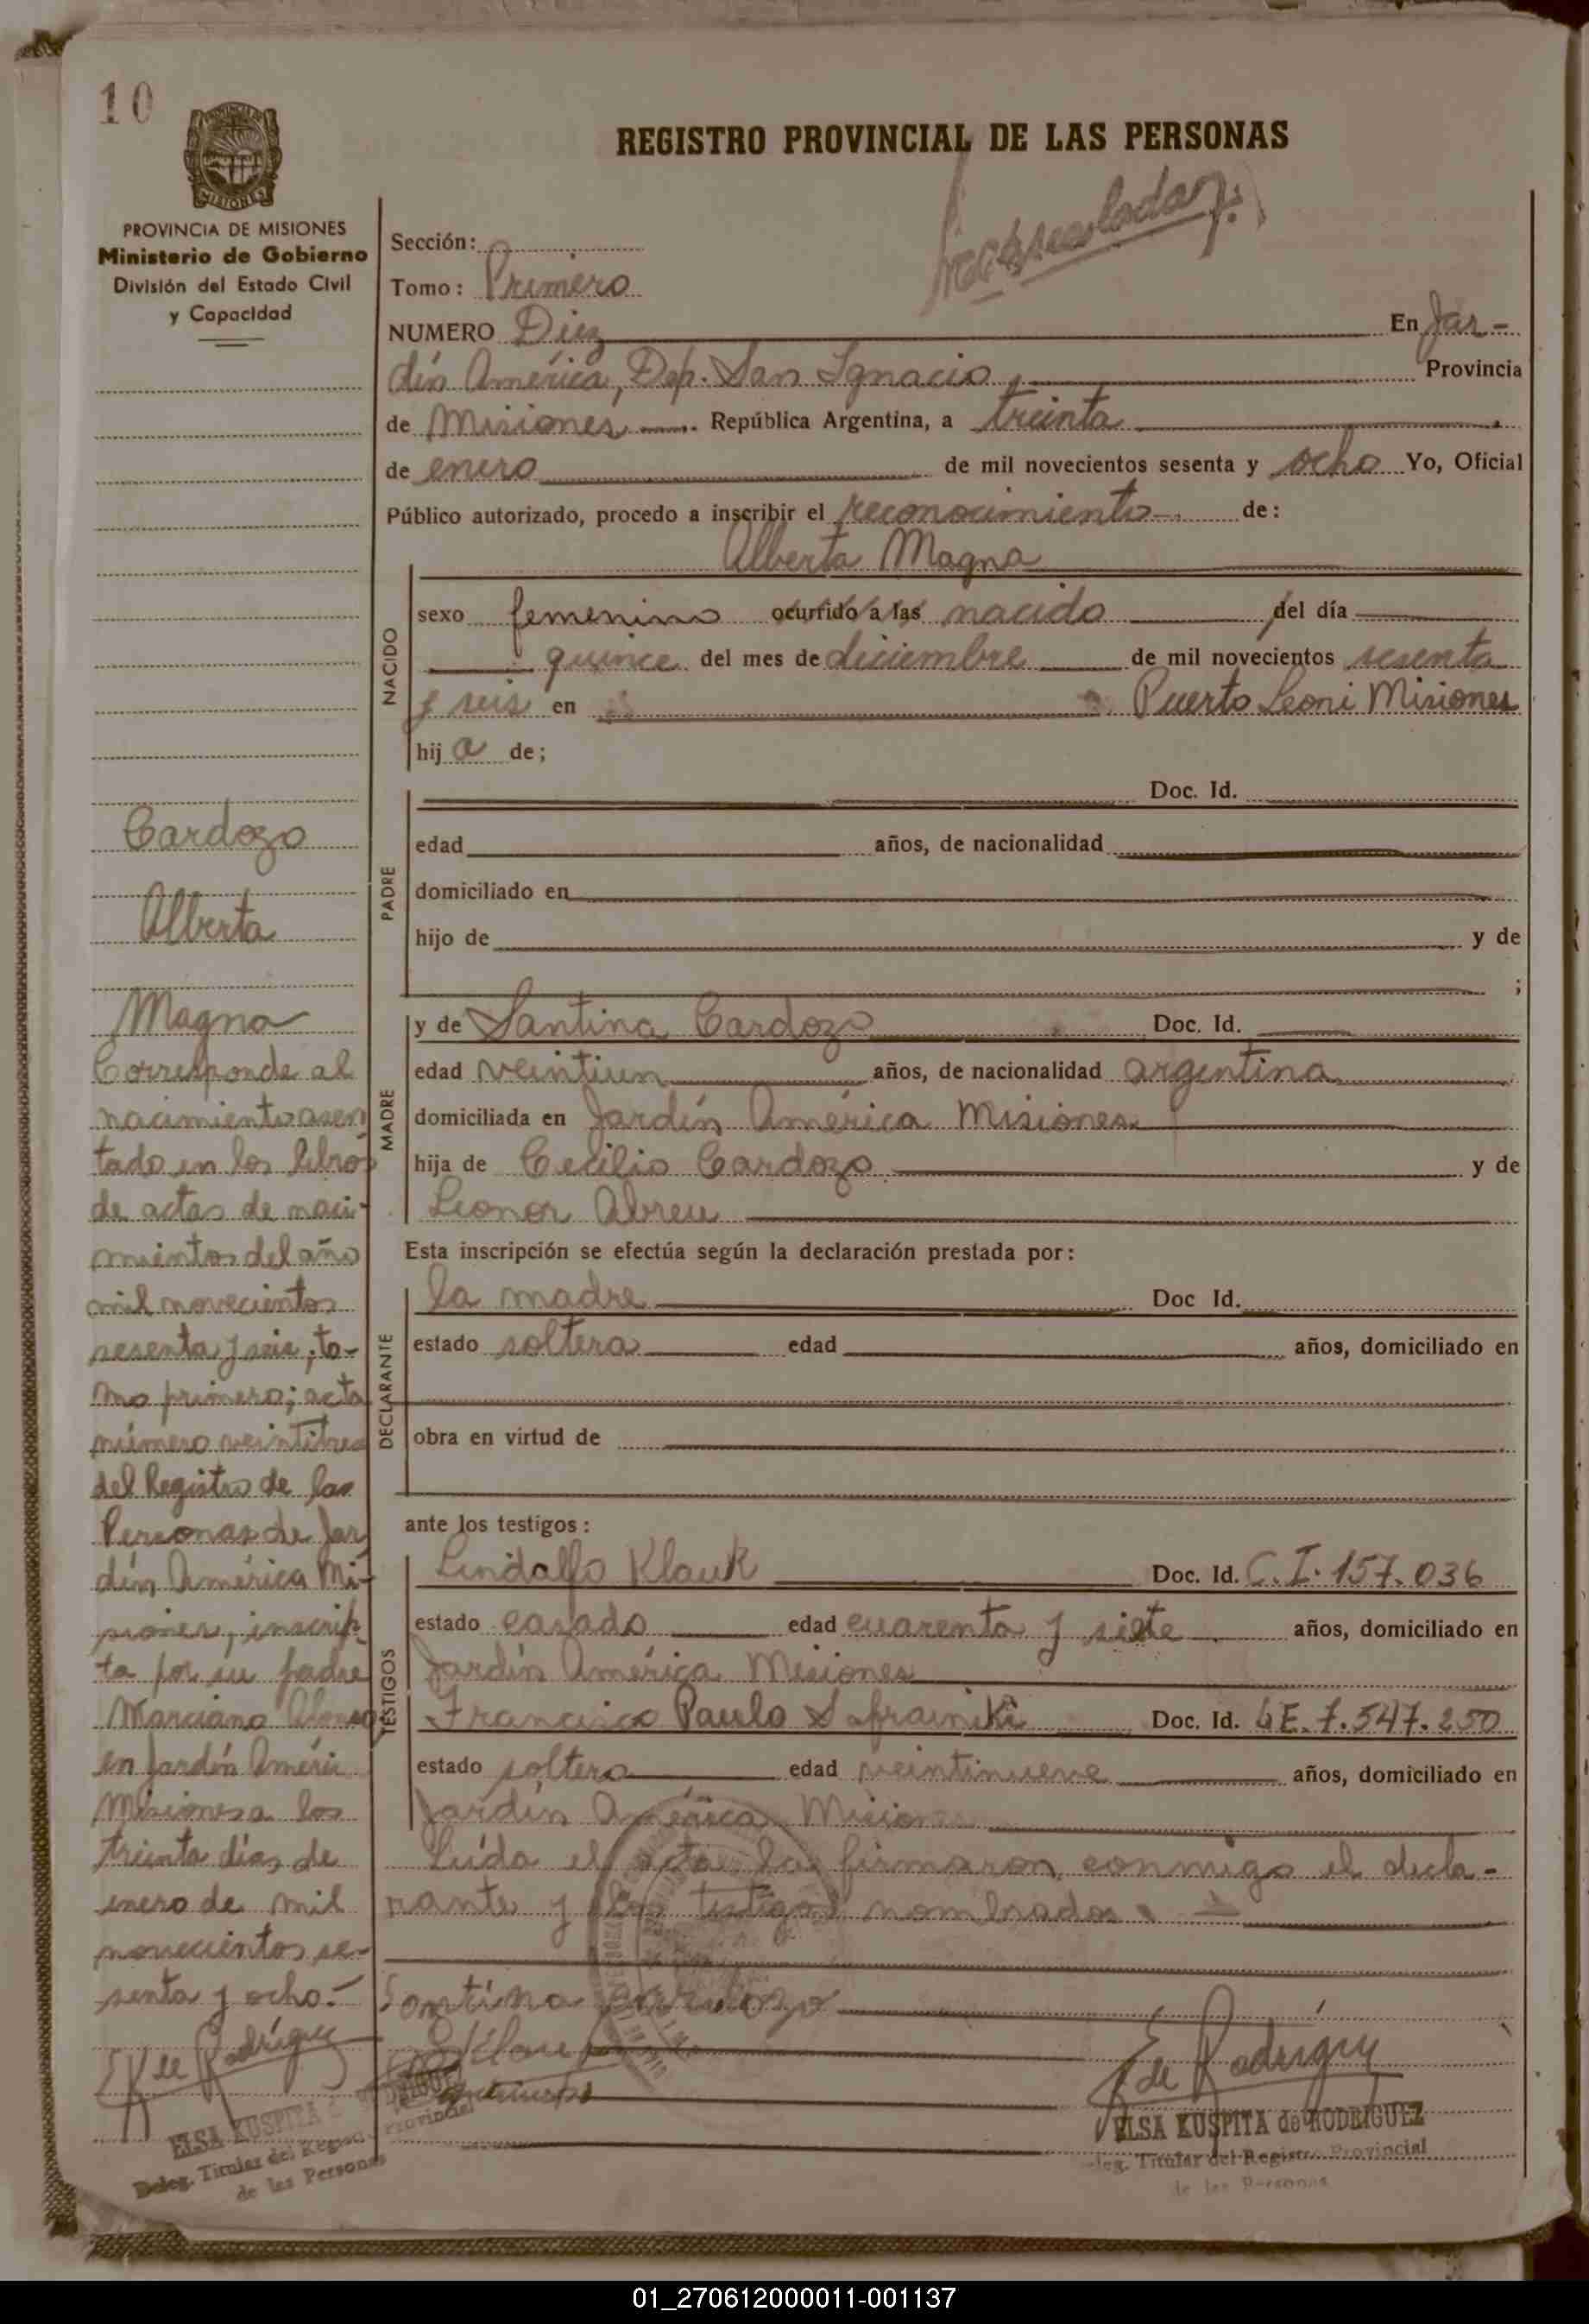 10
PROVINCIA DE MISIONES
Ministerio de Gobierno
División del Estado Civil
y Capacidad
REGISTRO PROVINCIAL DE LAS PERSONAS
Sección:
Tomo: Primero
NUMERO Diez En Jar-
dín América, Dep. San Ignacio, Provincia
de Misiones República Argentina, a treinta
de enero de mil novecientos sesenta y ocho Yo, Oficial
Público autorizado, procedo a inscribir el reconocimiento de:
Alberta Magna
NACIDO
sexo femenino ocurrido a las nacido del día
quince del mes de diciembre de mil novecientos sesenta
y seis en Puerto Leoni Misiones
hija de;
PADRE
Doc. Id.
edad años, de nacionalidad
domiciliado en
hijo de y de
;
MADRE
y de Santina Cardozo Doc. Id.
edad veintiun años, de nacionalidad argentina
domiciliada en Jardín América Misiones
hija de Cecilio Cardozo y de
Leonor Abreu
Esta inscripción se efectúa según la declaración prestada por:
DECLARANTE
la madre Doc Id.
estado soltera edad años, domiciliado en
obra en virtud de
ante los testigos:
TESTIGOS
Lindolfo Klauk Doc. Id. C.I. 157.036
estado casado edad cuarenta y siete años, domiciliado en
Jardín América Misiones
Francisco Paulo Doc. Id. LE. 7.547.250
estado soltero edad veintinueve años, domiciliado en
Jardín América Misiones
Leída el acta la firmaron conmigo el decla-
rante y los testigos nombrados.
Santina Cardozo
E de Rodríguez
ELSA KUSPITA de RODRIGUEZ
Deleg. Titular del Registro Provincial
de las Personas
Cardozo
Alberta
Magna
Corresponde al
nacimiento asen
tado en los libros
de actas de naci-
mientos del año
mil novecientos
sesenta y seis; to-
mo primero; acta
número veintitres
del Registro de las
Personas de Jar
dín América Mi-
siones, inscrip-
ta por su padre
Marciano Alonso
en Jardín Améri
Misiones a los
treinta días de
enero de mil
novecientos se-
senta y ocho.-
E K de Rodríguez
ELSA KUSPITA de RODRIGUEZ
Deleg. Titular del Registro Provincial
de las Personas
01_270612000011-001137